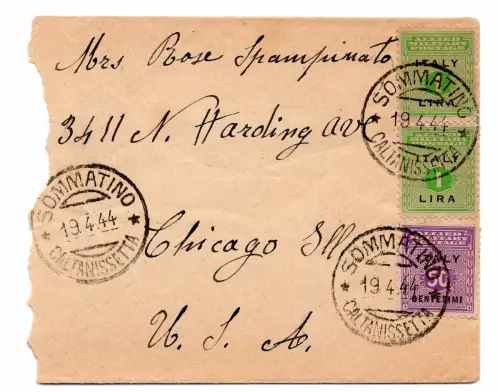 Mrs Rose Spampinato
3411 N. Harding ave
Chicago Ill
U. S. A.
ALLIED MILITARY POSTAGE
ITALY
LIRA
SOMMATINO
19.4.44
CALTANISSETTA
ITALY
1
LIRA
SOMMATINO
19.4.44
CALTANISSETTA
ITALY
50
CENTESIMI
SOMMATINO
19.4.44
CALTANISSETTA